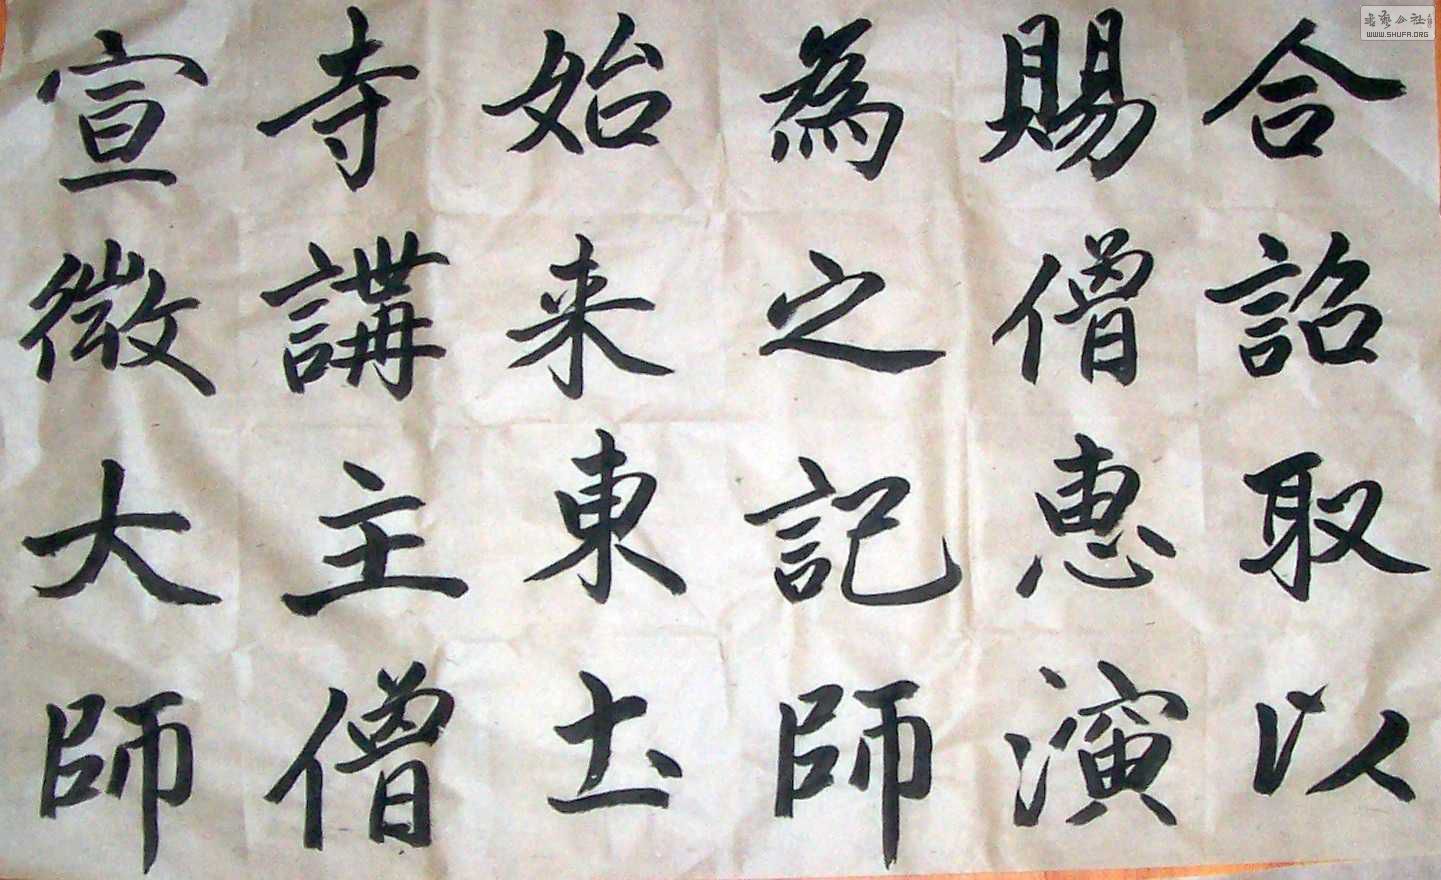 合詔取以
賜僧惠演
為之記師
始来東土
寺講主僧
宣微大師
WWW.SHUFA.ORG